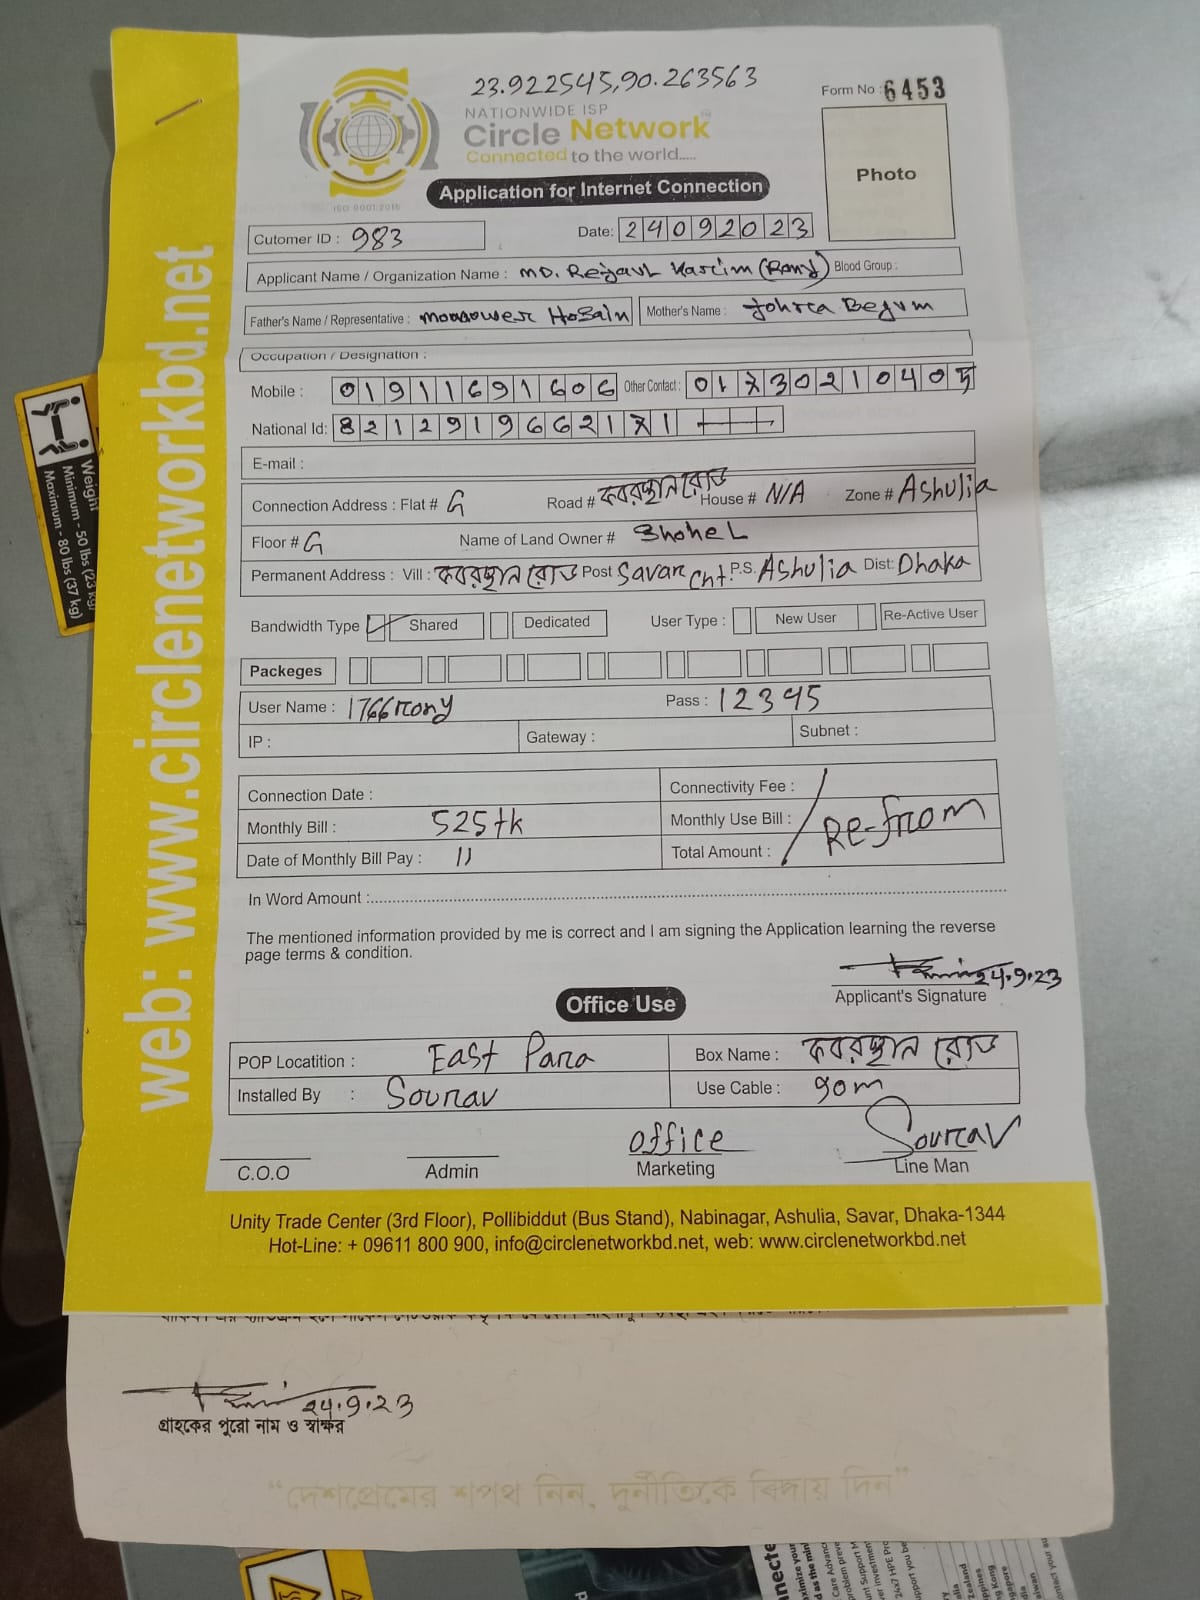 23.922545,90.263563
Form No : 6453
NATIONWIDE ISP
Circle Network
Connected to the world.....
ISO 9001:2015
Photo
Application for Internet Connection
Cutomer ID : 983 Date: 24092023
Applicant Name / Organization Name : MD. Rejaul Karim (Rony) Blood Group :
Father's Name / Representative : Monower Hosain Mother's Name : Johra Begum
Occupation / Designation :
Mobile : 01911691606 Other Contact : 01730210405
National Id: 8212919662171
E-mail :
Connection Address : Flat # G Road # কবরস্থান রোড House # N/A Zone # Ashulia
Floor # G Name of Land Owner # Shohel
Permanent Address : Vill : কবরস্থান রোড Post Savar Cnt. P.S. Ashulia Dist: Dhaka
Bandwidth Type Shared Dedicated User Type : New User Re-Active User
Packeges
User Name : 1766rony Pass : 12345
IP : Gateway : Subnet :
Connection Date : Connectivity Fee :
Monthly Bill : 525 tk Monthly Use Bill : Re-from
Date of Monthly Bill Pay : 11 Total Amount :
In Word Amount :
The mentioned information provided by me is correct and I am signing the Application learning the reverse
page terms & condition.
24.9.23
Applicant's Signature
Office Use
POP Locatition : East Para Box Name : কবরস্থান রোড
Installed By : Sourav Use Cable : 90m
office Sourav
C.O.O Admin Marketing Line Man
Unity Trade Center (3rd Floor), Pollibiddut (Bus Stand), Nabinagar, Ashulia, Savar, Dhaka-1344
Hot-Line: + 09611 800 900, info@circlenetworkbd.net, web: www.circlenetworkbd.net
web: www.circlenetworkbd.net
24.9.23
গ্রাহকের পুরো নাম ও স্বাক্ষর
“দেশপ্রেমের শপথ নিন, দুর্নীতিকে বিদায় দিন”
Weight
Minimum - 50 lbs (23 kg)
Maximum - 80 lbs (37 kg)